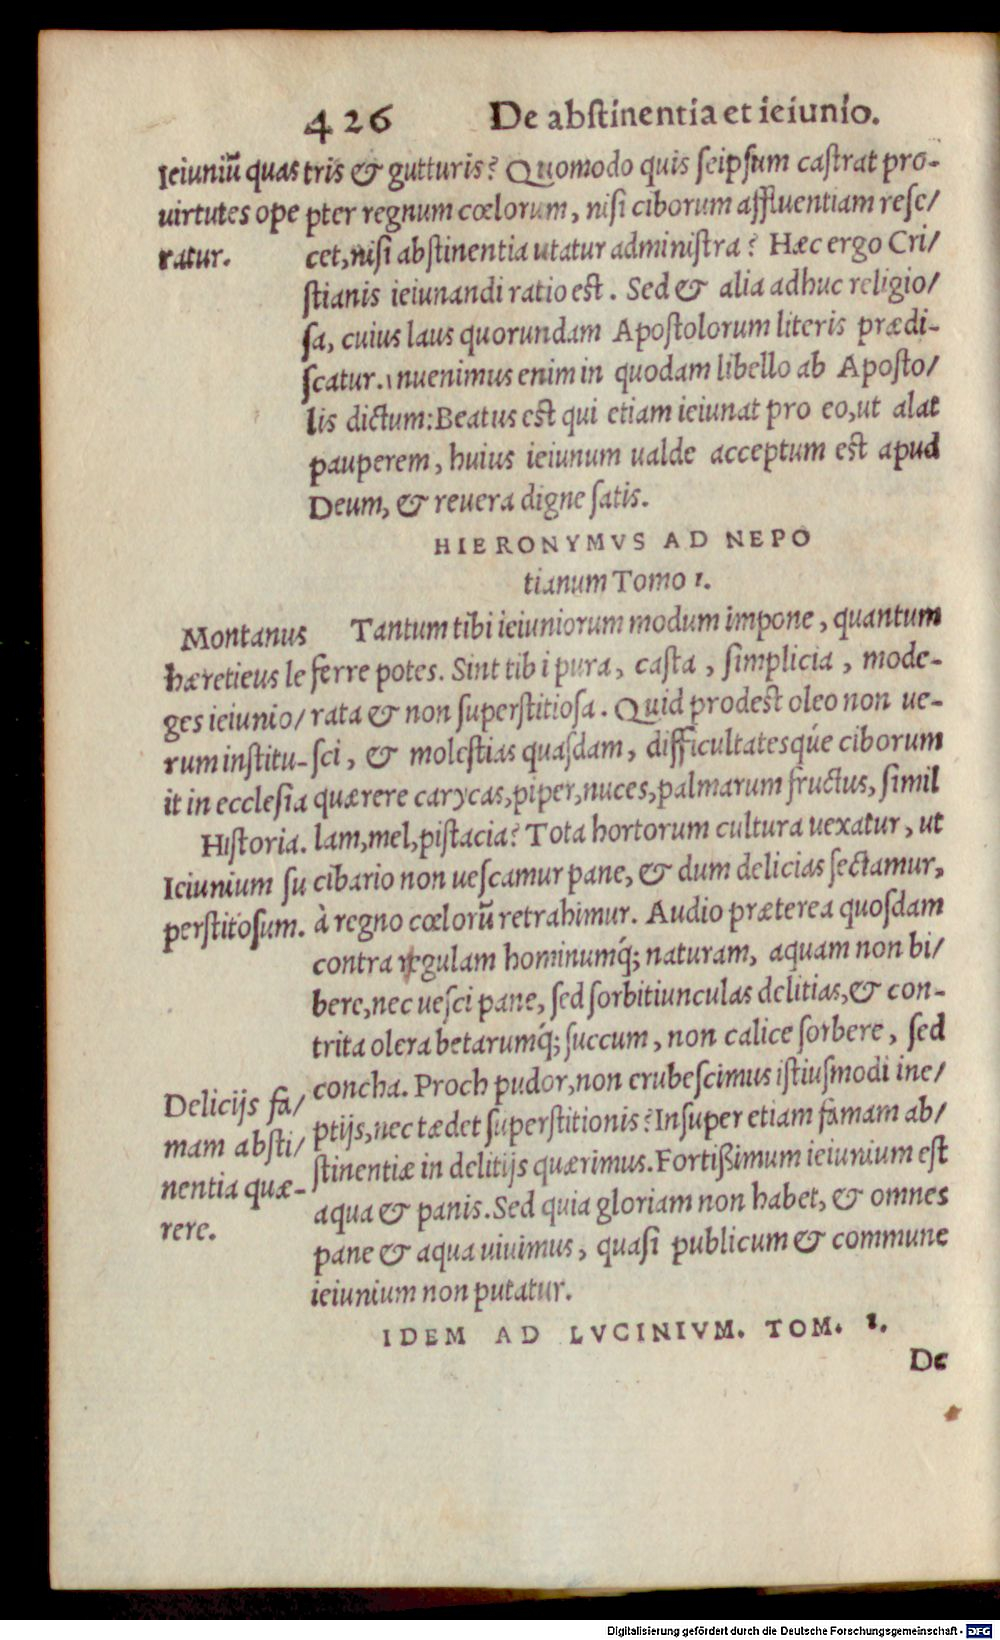 426 De abstinentia et ieiunio.
Ieiuniū quas
virtutes ope
ratur.
tris & gutturis? Quomodo quis seipsum castrat pro-
pter regnum cœlorum, nisi ciborum affluentiam rese/
cet, nisi abstinentia utatur administra? Hæc ergo Cri/
stianis ieiunandi ratio est. Sed & alia adhuc religio/
sa, cuius laus quorundam Apostolorum literis prædi-
scatur. Inuenimus enim in quodam libello ab Aposto/
lis dictum: Beatus est qui etiam ieiunat pro eo, ut alat
pauperem, huius ieiunum ualde acceptum est apud
Deum, & revera digne satis.
HIERONYMVS AD NEPO
tianum Tomo 1.
Montanus
hæretieus le
ges ieiunio/
rum institu-
it in ecclesia
Historia.
Ieiunium su
perstitosum.
Tantum tibi ieiuniorum modum impone, quantum
ferre potes. Sint tibi pura, casta, simplicia, mode-
rata & non superstitiosa. Quid prodest oleo non ue-
sci, & molestias quasdam, difficultatesqúe ciborum
quærere carycas, piper, nuces, palmarum fructus, simil
lam, mel, pistacia? Tota hortorum cultura uexatur, ut
cibario non uescamur pane, & dum delicias sectamur,
à regno cœlorū retrahimur. Audio præterea quosdam
contra regulam hominumq́; naturam, aquam non bi/
bere, nec uesci pane, sed sorbitiunculas delitias, & con-
trita olera betarumq́; succum, non calice sorbere, sed
concha. Proch pudor, non erubescimus istiusmodi ine/
ptijs, nec tædet superstitionis? Insuper etiam famam ab/
stinentiæ in delitijs quærimus. Fortißimum ieiunium est
aqua & panis. Sed quia gloriam non habet, & omnes
pane & aqua uiuimus, quasi publicum & commune
ieiunium non putatur.
Delicijs fa/
mam absti/
nentia quæ-
rere.
IDEM AD LVCINIVM. TOM. 1.
De
Digitalisierung gefördert durch die Deutsche Forschungsgemeinschaft - DFG